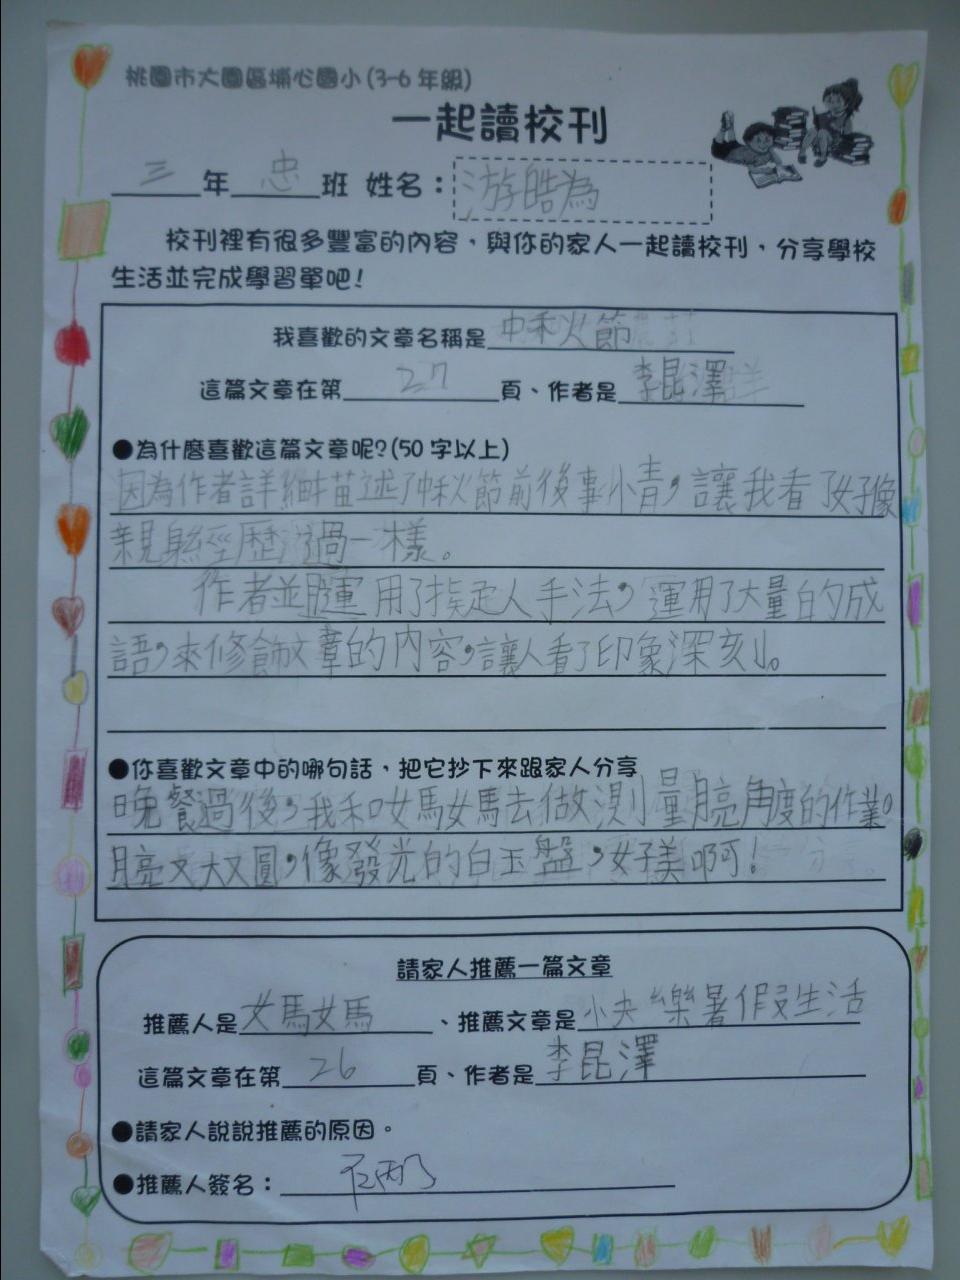 桃園市大園區埔心國小(3-6年級)
一起讀校刊
三年忠班 姓名：游皓為
校刊裡有很多豐富的內容，與你的家人一起讀校刊，分享學校
生活並完成學習單吧！
我喜歡的文章名稱是中秋節
這篇文章在第27頁、作者是李昆澤
●為什麼喜歡這篇文章呢?(50字以上)
因為作者詳細描述了中秋節前後事情，讓我看了好像
親身經歷過一樣。
作者並運用了擬人手法，運用了大量的成
語，來修飾文章的內容，讓人看了印象深刻。
●你喜歡文章中的哪句話，把它抄下來跟家人分享
晚餐過後，我和媽媽去做測量月亮角度的作業。
月亮又大又圓，像發光的白玉盤，好美啊！
請家人推薦一篇文章
推薦人是媽媽、推薦文章是快樂暑假生活
這篇文章在第26頁、作者是李昆澤
●請家人說說推薦的原因。
●推薦人簽名：